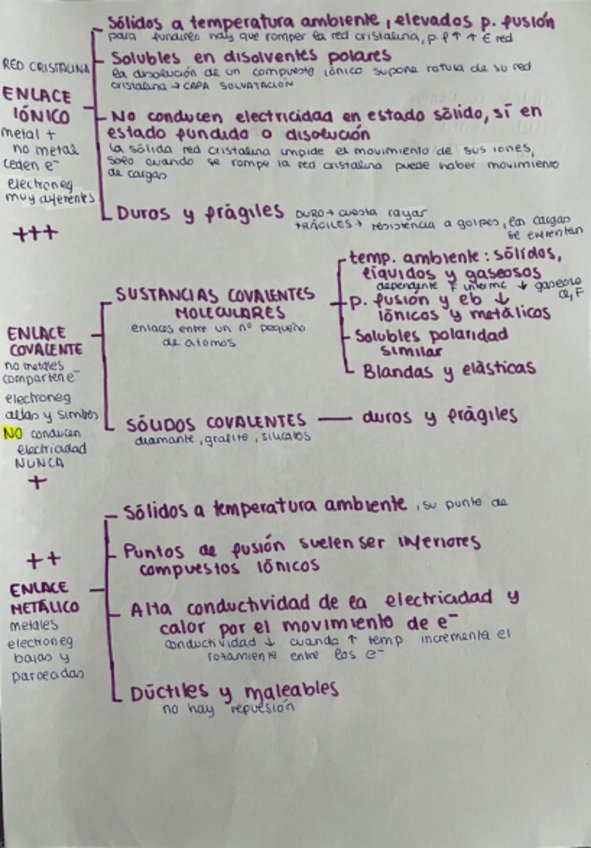 Sólidos a temperatura ambiente, elevados p. fusión
para fundirlo hay que romper la red cristalina, p f ↑ ↑ E red
RED CRISTALINA
Solubles en disolventes polares
la disolución de un compuesto iónico supone rotura de su red
cristalina → CAPA SOLVATACIÓN
ENLACE
IÓNICO
metal +
no metal
ceden e⁻
electroneg
muy diferentes
+++
No conducen electricidad en estado sólido, sí en
estado fundido o disolución
la sólida red cristalina impide el movimiento de sus iones,
solo cuando se rompe la red cristalina puede haber movimiento
de cargas
Duros y frágiles DURO → cuesta rayar
FRÁGILES → resistencia a golpes, las cargas
se enfrentan
ENLACE
COVALENTE
no metales
comparten e⁻
electroneg
altas y
NO conducen
electricidad
NUNCA
+
SUSTANCIAS COVALENTES
MOLECULARES
enlaces entre un nº pequeño
de atomos
temp. ambiente: sólidos,
líquidos y gaseosos
dependente F interme ↓ gaseoso
Cl, F
p. fusión y eb ↓
iónicos y metálicos
Solubles polaridad
similar
Blandas y elásticas
SÓLIDOS COVALENTES — duros y frágiles
diamante, grafito, silicatos
++
ENLACE
METÁLICO
metales
electroneg
bajas y
parecadas
Sólidos a temperatura ambiente, su punto de
Puntos de fusión suelen ser inferiores
compuestos iónicos
Alta conductividad de la electricidad y
calor por el movimiento de e⁻
conductividad ↓ cuando ↑ temp incrementa el
rozamiento entre los e⁻
Dúctiles y maleables
no hay repulsión